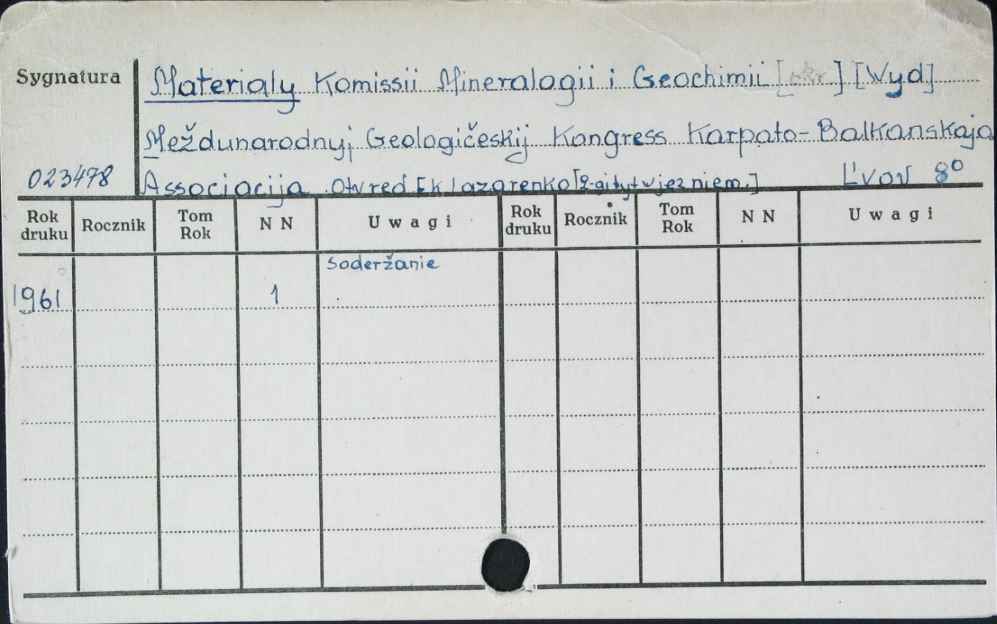 Sygnatura
Materialy Komissii Mineralogii i Geochimii [Wyd]
Meždunarodnyj Geologičeskij Kongress Karpato-Balkanskaja
023478 Associacija. Otv red E k Lazarenko [2-gi tyt w jęz niem.] L'vov 8º
Rok druku Rocznik Tom Rok N N Uwagi Rok druku Rocznik Tom Rok N N Uwagi
Soderžanie
1961 1